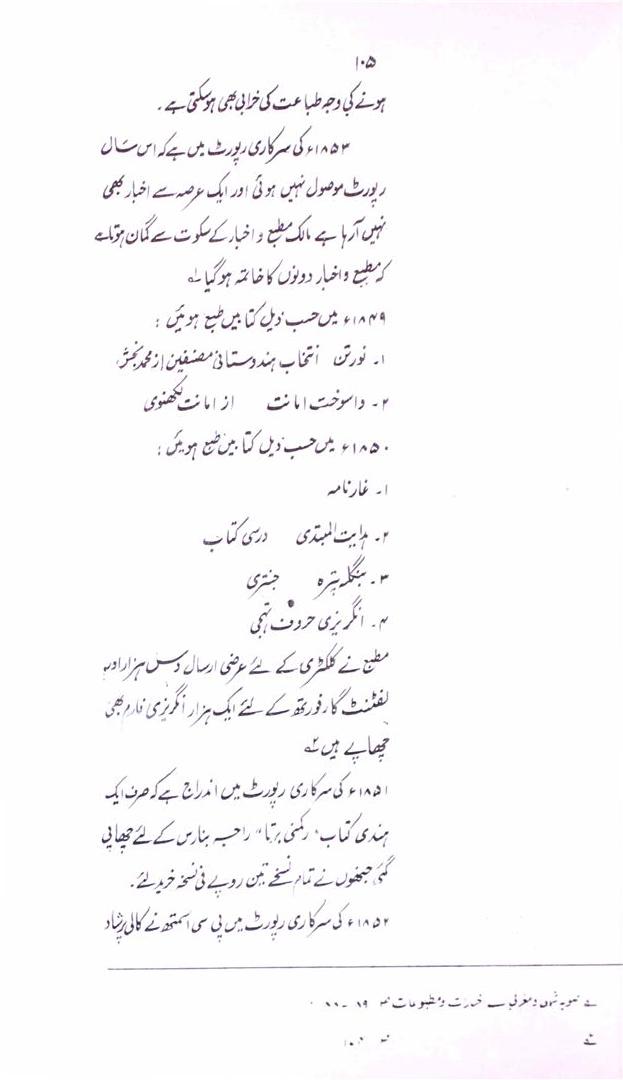 ۱۰۵
ہونے کی وجہ طباعت کی خرابی بھی ہو سکتی ہے۔
۱۸۵۳ء کی سرکاری رپورٹ میں ہے کہ اس سال
رپورٹ موصول نہیں ہوئی اور ایک عرصہ سے اخبار بھی
نہیں آرہا ہے مالک مطبع و اخبار کے سکوت سے گمان ہوتا ہے
کہ مطبع و اخبار دونوں کا خاتمہ ہو گیا ۱؎
۱۸۴۹ء میں حسب ذیل کتابیں طبع ہوئیں :
۱۔ نورتن انتخاب ہندوستانی مصنفین از محمد بخش
۲۔ واسوخت امانت از امانت لکھنوی
۱۸۵۰ء میں حسب ذیل کتابیں طبع ہوئیں :
۱۔ غارنامہ
۲۔ ہدایت المبتدی درسی کتاب
۳۔ بنگلہ پترہ جنتری
۴۔ انگریزی حروف تہجی
مطبع نے کلکٹری کے لئے عرضی ارسال دس ہزار اور
لفٹنٹ گارفورتھ کے لئے ایک ہزار انگریزی فارم بھی
چھاپے ہیں ۲؎
۱۸۵۱ء کی سرکاری رپورٹ میں اندراج ہے کہ صرف ایک
ہندی کتاب "رکمنی برتا" راجہ بنارس کے لئے چھاپی
گئی جنھوں نے تمام نسخے تین روپے فی نسخہ خرید لئے۔
۱۸۵۲ء کی سرکاری رپورٹ میں پی سی اسمتھ نے کالی پرشاد
۱؎ صوبہ شمالی و مغربی کے اخبارات و مطبوعات ص
۲؎ ص